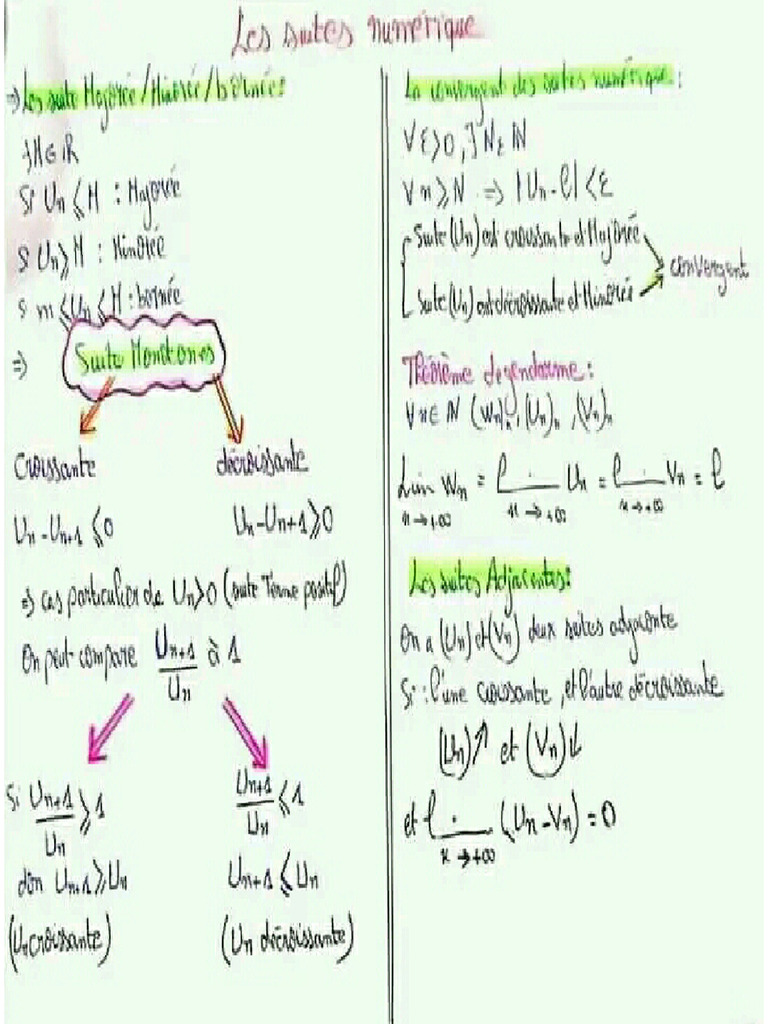 Les suites numérique
⇒ Les suite Majorée/Minorée/bornée:
∃M∈ℝ
Si Un ≤ M : Majorée
Si Un ≥ M : Minorée
Si m ≤ Un ≤ M : bornée
⇒ Suite Monotones
Croissante décroissante
Un - Un+1 ≤ 0 Un - Un+1 ≥ 0
⇒ cas particulier de Un > 0 (suite Terme positif)
On peut compare Un+1/Un à 1
Si Un+1/Un ≥ 1 Un+1/Un ≤ 1
don Un+1 ≥ Un Un+1 ≤ Un
(Un croissante) (Un décroissante)
La convergent des suites numérique:
∀ε>0, ∃N∈ℕ
∀n≥N ⇒ |Un - l| < ε
Suite (Un) est croissante et Majorée
convergent
Suite (Un) est décroissante et Minorée
Théorème de gendarme:
∀n∈ℕ (Wn)n, (Un)n, (Vn)n
Lim Wn = lim Un = lim Vn = l
n→+∞ n→+∞ n→+∞
Les suites Adjacentes:
On a (Un) et (Vn) deux suites adjacente
Si : l'une croissante, et l'autre décroissante
(Un)↗ et (Vn)↓
et lim (Un - Vn) = 0
n→+∞